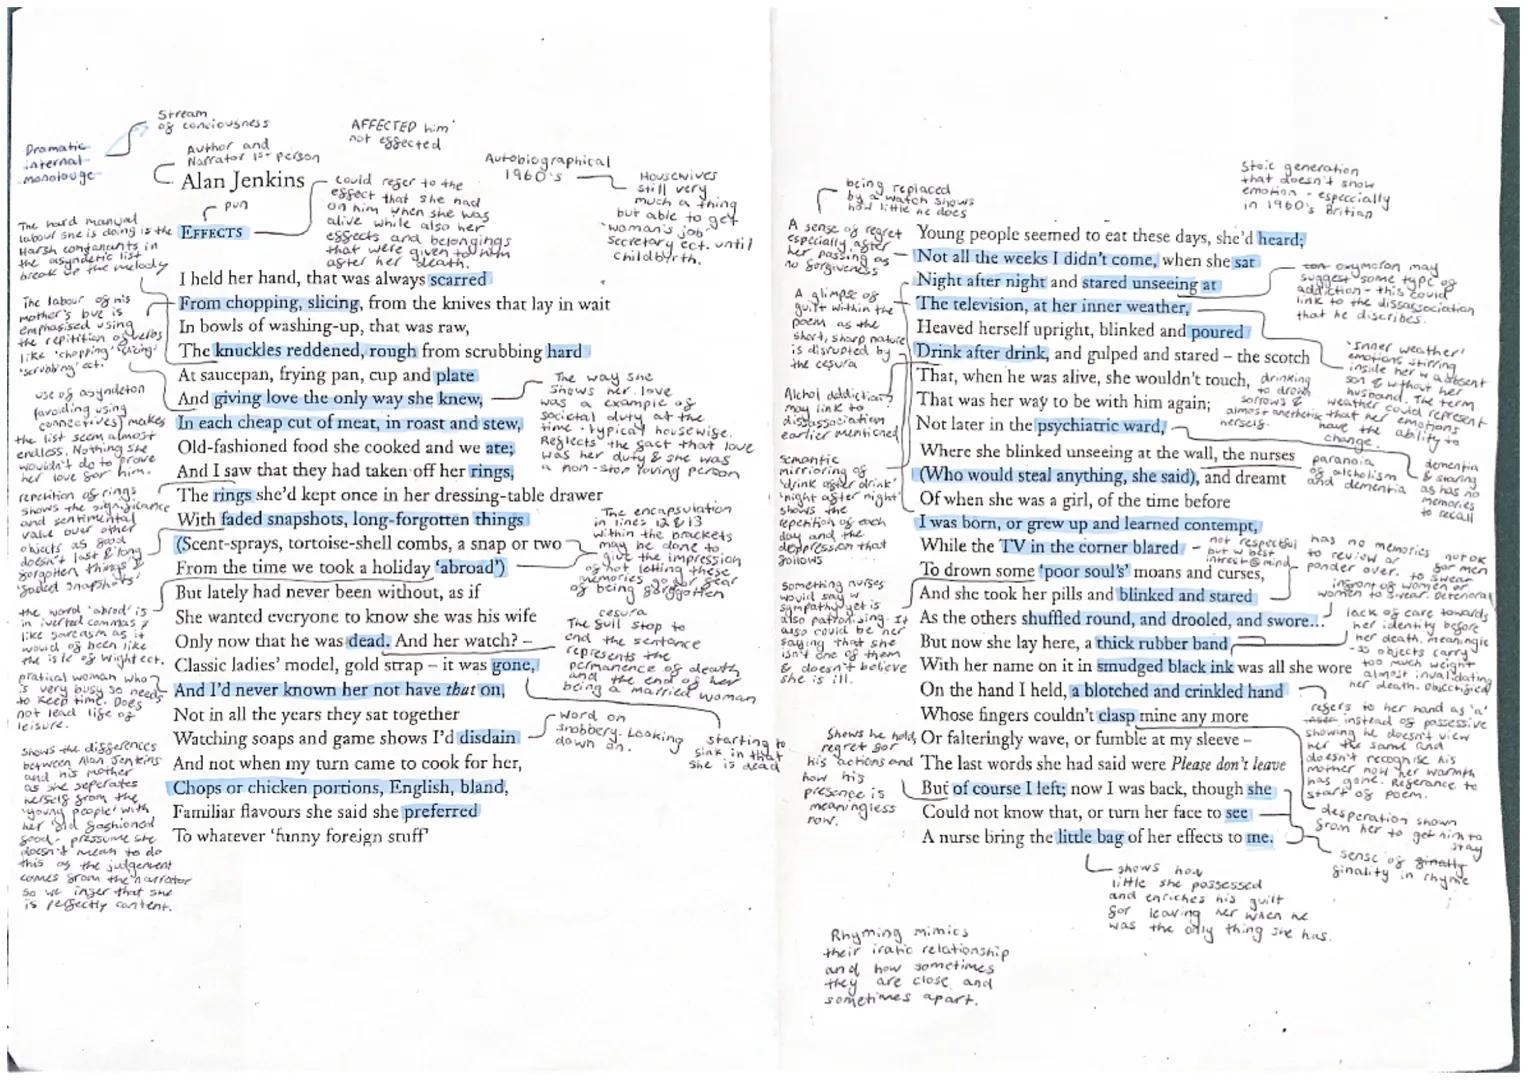 Stream
of conciousness
Dramatic
internal
monolouge
AFFECTED him
not effected
Author and
Narrator 1st person
Alan Jenkins
Autobiographical
1960's
Housewives
still very
much a thing
but able to get
'woman's job'
secretary ect. until
childbirth.
pun
EFFECTS
could refer to the
effect that she had
on him when she was
alive while also her
effects and belongings
that were given to him
after her death.
The hard manual
labour she is doing is the
Harsh consanants in
the asyndetic list
break up the melody
I held her hand, that was always scarred
From chopping, slicing, from the knives that lay in wait
In bowls of washing-up, that was raw,
The knuckles reddened, rough from scrubbing hard
At saucepan, frying pan, cup and plate
And giving love the only way she knew,
In each cheap cut of meat, in roast and stew,
Old-fashioned food she cooked and we ate;
And I saw that they had taken off her rings,
The rings she'd kept once in her dressing-table drawer
With faded snapshots, long-forgotten things
(Scent-sprays, tortoise-shell combs, a snap or two
From the time we took a holiday 'abroad')
But lately had never been without, as if
She wanted everyone to know she was his wife
Only now that he was dead. And her watch? –
Classic ladies' model, gold strap – it was gone,
And I'd never known her not have that on,
Not in all the years they sat together
Watching soaps and game shows I'd disdain
And not when my turn came to cook for her,
Chops or chicken portions, English, bland,
Familiar flavours she said she preferred
To whatever 'funny foreign stuff'
The labour of his
mother's love is
emphasised using
the repitition of verbs
like 'chopping' 'slicing'
'scrubbing' ect.
use of asyndeton
(avoiding using
connectives) makes
the list seem almost
endless. Nothing she
wouldn't do to prove
her love for him.
repetition of rings
shows the significance
and sentimental
value over other
objects as good
doesn't last & 'long
forgotten things' &
'faded snapshots'
the word 'abrod' is
in iverted commas
like sarcasm as it
would of been like
the isle of Wight ect.
pratical woman who
is very busy so needs
to keep time. Does
not lead life of
leisure.
shows the differences
between Alan Jenkins
and his mother
as she seperates
herself from the
'young people' with
her 'old fashioned
food' - pressume she
doesn't mean to do
this as the judgement
comes from the narrator
so we infer that she
is perfectly content.
The way she
shows her love
was as example of
societal duty at the
time - typical housewife.
Reflects the fact that love
was her duty & she was
a non-stop loving person
The encapsulation
in lines 12 & 13
within the brackets
may be done to
give the impression
of not letting these
memories go for fear
of being forgotten
cesura
The full stop to
end the sentance
represents the
permanence of death
and the end of her
being a married woman
word on
snobbery. Looking
down on.
starting to
sink in that
she is dead
being replaced
by a watch shows
how little he does
Stoic generation
that doesn't show
emotion - especially
in 1960's Britian
A sense of regret
especially after
her passing as
no forgiveness
Young people seemed to eat these days, she'd heard;
Not all the weeks I didn't come, when she sat
Night after night and stared unseeing at
The television, at her inner weather,
Heaved herself upright, blinked and poured
Drink after drink, and gulped and stared – the scotch
That, when he was alive, she wouldn't touch,
That was her way to be with him again;
Not later in the psychiatric ward,
Where she blinked unseeing at the wall, the nurses
(Who would steal anything, she said), and dreamt
Of when she was a girl, of the time before
I was born, or grew up and learned contempt,
While the TV in the corner blared
To drown some 'poor soul's' moans and curses,
And she took her pills and blinked and stared
As the others shuffled round, and drooled, and swore...
But now she lay here, a thick rubber band
With her name on it in smudged black ink was all she wore
On the hand I held, a blotched and crinkled hand
Whose fingers couldn't clasp mine any more
Or falteringly wave, or fumble at my sleeve –
The last words she had said were Please don't leave
But of course I left; now I was back, though she
Could not know that, or turn her face to see
A nurse bring the little bag of her effects to me.
A glimpse of
guilt within the
poem as the
short, sharp nature
is disrupted by
the cesura
Alchol addiction
may link to
dissassociation
earlier mentioned
semantic
mirrioring of
'drink after drink'
'night after night'
shows the
repetition of each
day and the
deppression that
follows
something nurses
would say w
sympathy yet is
also patronising. It
also could be her
saying that she
isn't one of them
& doesn't believe
she is ill.
Shows he hold
regret for
his actions and
how his
presence is
meaningless
now.
oxymoron may
suggest some type of
addiction - this could
link to the dissassociation
that he discribes.
'Inner weather'
emotions stirring
inside her w absent
son & without her
husband. The term
weather could represent
that her emotions
have the ability to
change.
drinking
to drown
sorrows &
almost anethetic
herself.
paranoia
of alcholism
and dementia
dementia
& staring
as has no
memories
to recall
not respectful
but w best
intrest @ mind
has no memories
to review or
ponder over.
not ok
for men
to swear
infront of women or
women to swear. Deterioral
lack of care towards
her identity before
her death. meaningle
-ss objects carry
too much weight
almost invalidating
her death. Objectified
refers to her hand as 'a'
instead of possessive
showing he doesn't view
her the same and
doesn't recognise his
mother now her warmth
has gone. Referance to
start of poem.
desperation shown
from her to get him to
stay
sense of finally
finality in rhyme
shows how
little she possessed
and enriches his guilt
for leaving her when he
was the only thing she has.
Rhyming mimics
their iratic relationship
and how sometimes
they are close and
sometimes apart.